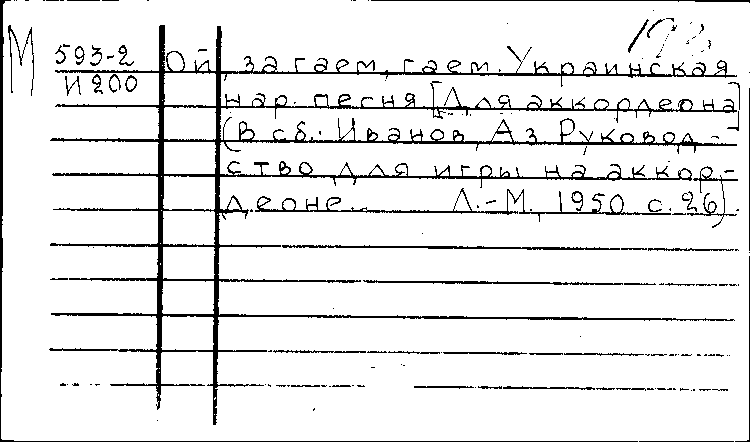 М 593-2 Ой, за гаем, гаем. Украинская
И 200 нар. песня [Для аккордеона]
(В сб.: Иванов, Аз. Руковод-
ство для игры на аккор-
деоне. Л.-М., 1950 с. 26).